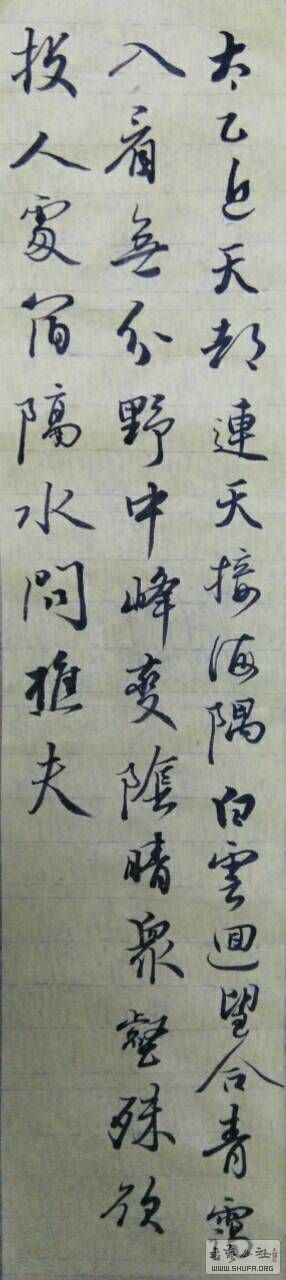 太乙近天都連天接海隅白雲迴望合青靄
入看無分野中峰變陰晴衆壑殊欲
投人處宿隔水問樵夫
书法公社
WWW.SHUFA.ORG